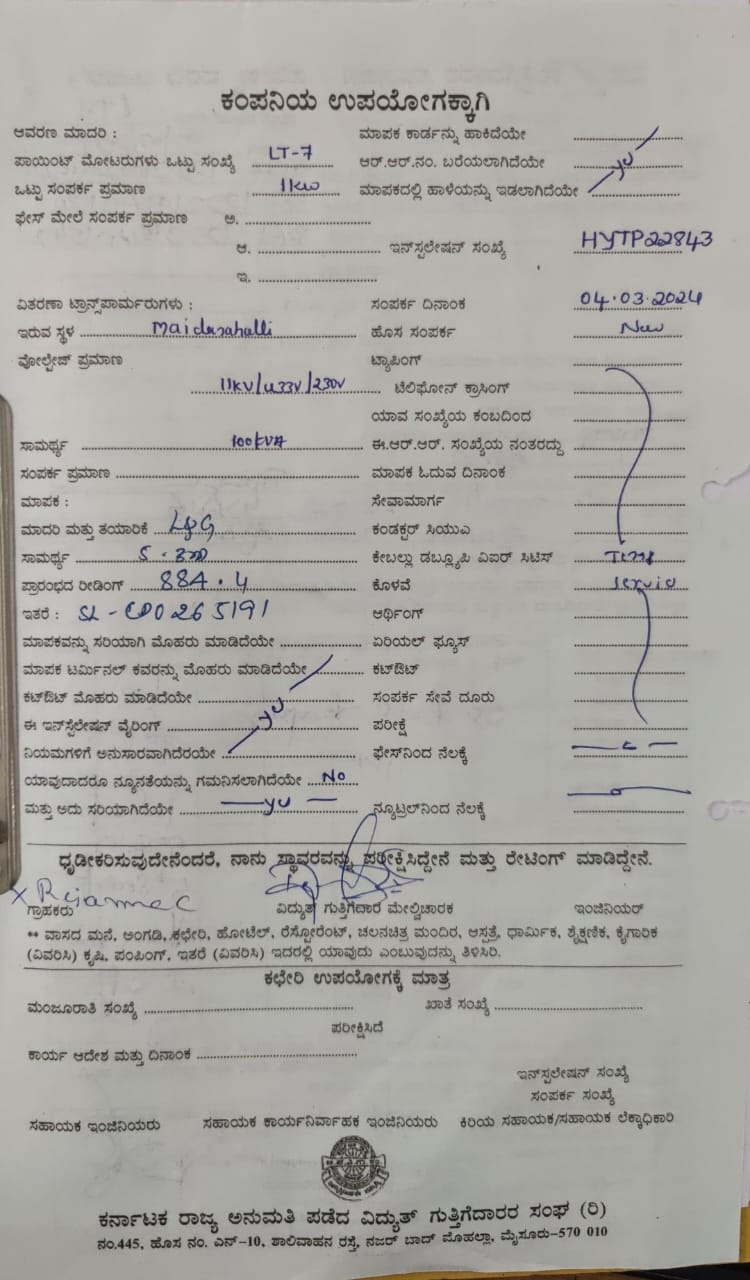 ಕಂಪನಿಯ ಉಪಯೋಗಕ್ಕಾಗಿ
ಆವರಣ ಮಾದರಿ : ಮಾಪಕ ಕಾರ್ಡನ್ನು ಹಾಕಿದೆಯೇ
ಪಾಯಿಂಟ್ ಮೋಟರುಗಳು ಒಟ್ಟು ಸಂಖ್ಯೆ LT-7 ಆರ್.ಆರ್.ನಂ. ಬರೆಯಲಾಗಿದೆಯೇ
ಒಟ್ಟು ಸಂಪರ್ಕ ಪ್ರಮಾಣ 1kw ಮಾಪಕದಲ್ಲಿ ಹಾಳೆಯನ್ನು ಇಡಲಾಗಿದೆಯೇ
ಫೇಸ್ ಮೇಲೆ ಸಂಪರ್ಕ ಪ್ರಮಾಣ ಅ.
ಆ. ಇನ್‌ಸ್ಟಲೇಷನ್ ಸಂಖ್ಯೆ HYTP22843
ಇ.
ವಿತರಣಾ ಟ್ರಾನ್ಸ್‌ಫಾರ್ಮರುಗಳು : ಸಂಪರ್ಕ ದಿನಾಂಕ 04.03.2024
ಇರುವ ಸ್ಥಳ Maidanahalli ಹೊಸ ಸಂಪರ್ಕ New
ವೋಲ್ಟೇಜ್ ಪ್ರಮಾಣ ಟ್ಯಾಪಿಂಗ್
11KV/433V/230V ಟೆಲಿಫೋನ್ ಕ್ರಾಸಿಂಗ್
ಯಾವ ಸಂಖ್ಯೆಯ ಕಂಬದಿಂದ
ಸಾಮರ್ಥ್ಯ 100KVA ಈ.ಆರ್.ಆರ್. ಸಂಖ್ಯೆಯ ನಂತರದ್ದು
ಸಂಪರ್ಕ ಪ್ರಮಾಣ ಮಾಪಕ ಓದುವ ದಿನಾಂಕ
ಮಾಪಕ : ಸೇವಾಮಾರ್ಗ
ಮಾದರಿ ಮತ್ತು ತಯಾರಿಕೆ L&G ಕಂಡಕ್ಟರ್ ಸಿಯುಎ
ಸಾಮರ್ಥ್ಯ ಕೇಬಲ್ಲು ಡಬ್ಲ್ಯೂಪಿ ವಿಐರ್ ಸಿಟಿಸ್ Temp
ಪ್ರಾರಂಭದ ರೀಡಿಂಗ್ 884.4 ಕೊಳವೆ service
ಇತರೆ : SL- 00265191 ಆರ್ಥಿಂಗ್
ಮಾಪಕವನ್ನು ಸರಿಯಾಗಿ ಮೊಹರು ಮಾಡಿದೆಯೇ ಏರಿಯಲ್ ಫ್ಯೂಸ್
ಮಾಪಕ ಟರ್ಮಿನಲ್ ಕವರನ್ನು ಮೊಹರು ಮಾಡಿದೆಯೇ ಕಟ್‌ಔಟ್
ಕಟ್‌ಔಟ್ ಮೊಹರು ಮಾಡಿದೆಯೇ ಸಂಪರ್ಕ ಸೇವೆ ದೂರು
ಈ ಇನ್‌ಸ್ಟಲೇಷನ್ ವೈರಿಂಗ್ ಪರೀಕ್ಷೆ
ನಿಯಮಗಳಿಗೆ ಅನುಸಾರವಾಗಿದೆರಯೇ ಫೇಸ್‌ನಿಂದ ನೆಲಕ್ಕೆ
ಯಾವುದಾದರೂ ನ್ಯೂನತೆಯನ್ನು ಗಮನಿಸಲಾಗಿದೆಯೇ No
ಮತ್ತು ಅದು ಸರಿಯಾಗಿದೆಯೇ ನ್ಯೂಟ್ರಲ್‌ನಿಂದ ನೆಲಕ್ಕೆ
ಧೃಡೀಕರಿಸುವುದೇನೆಂದರೆ, ನಾನು ಸ್ಥಾವರವನ್ನು ಪರೀಕ್ಷಿಸಿದ್ದೇನೆ ಮತ್ತು ರೇಟಿಂಗ್ ಮಾಡಿದ್ದೇನೆ.
ಗ್ರಾಹಕರು ವಿದ್ಯುತ್ ಗುತ್ತಿಗೆದಾರ ಮೇಲ್ವಿಚಾರಕ ಇಂಜಿನಿಯರ್
** ವಾಸದ ಮನೆ, ಅಂಗಡಿ, ಕಛೇರಿ, ಹೋಟೆಲ್, ರೆಸ್ಟೋರೆಂಟ್, ಚಲನಚಿತ್ರ ಮಂದಿರ, ಆಸ್ಪತ್ರೆ, ಧಾರ್ಮಿಕ, ಶೈಕ್ಷಣಿಕ, ಕೈಗಾರಿಕ
(ವಿವರಿಸಿ) ಕೃಷಿ, ಪಂಪಿಂಗ್, ಇತರೆ (ವಿವರಿಸಿ) ಇದರಲ್ಲಿ ಯಾವುದು ಎಂಬುವುದನ್ನು ತಿಳಿಸಿರಿ.
ಕಛೇರಿ ಉಪಯೋಗಕ್ಕೆ ಮಾತ್ರ
ಮಂಜೂರಾತಿ ಸಂಖ್ಯೆ ಖಾತೆ ಸಂಖ್ಯೆ
ಪರೀಕ್ಷಿಸಿದೆ
ಕಾರ್ಯ ಆದೇಶ ಮತ್ತು ದಿನಾಂಕ
ಇನ್‌ಸ್ಟಲೇಷನ್ ಸಂಖ್ಯೆ
ಸಂಪರ್ಕ ಸಂಖ್ಯೆ
ಸಹಾಯಕ ಇಂಜಿನಿಯರು ಸಹಾಯಕ ಕಾರ್ಯನಿರ್ವಾಹಕ ಇಂಜಿನಿಯರು ಕಿರಿಯ ಸಹಾಯಕ/ಸಹಾಯಕ ಲೆಕ್ಕಾಧಿಕಾರಿ
ಕರ್ನಾಟಕ ರಾಜ್ಯ ಅನುಮತಿ ಪಡೆದ ವಿದ್ಯುತ್ ಗುತ್ತಿಗೆದಾರರ ಸಂಘ (ರಿ)
ನಂ.445, ಹೊಸ ನಂ. ಎನ್-10, ಶಾಲಿವಾಹನ ರಸ್ತೆ, ನಜರ್ ಬಾದ್ ಮೊಹಲ್ಲಾ, ಮೈಸೂರು-570 010